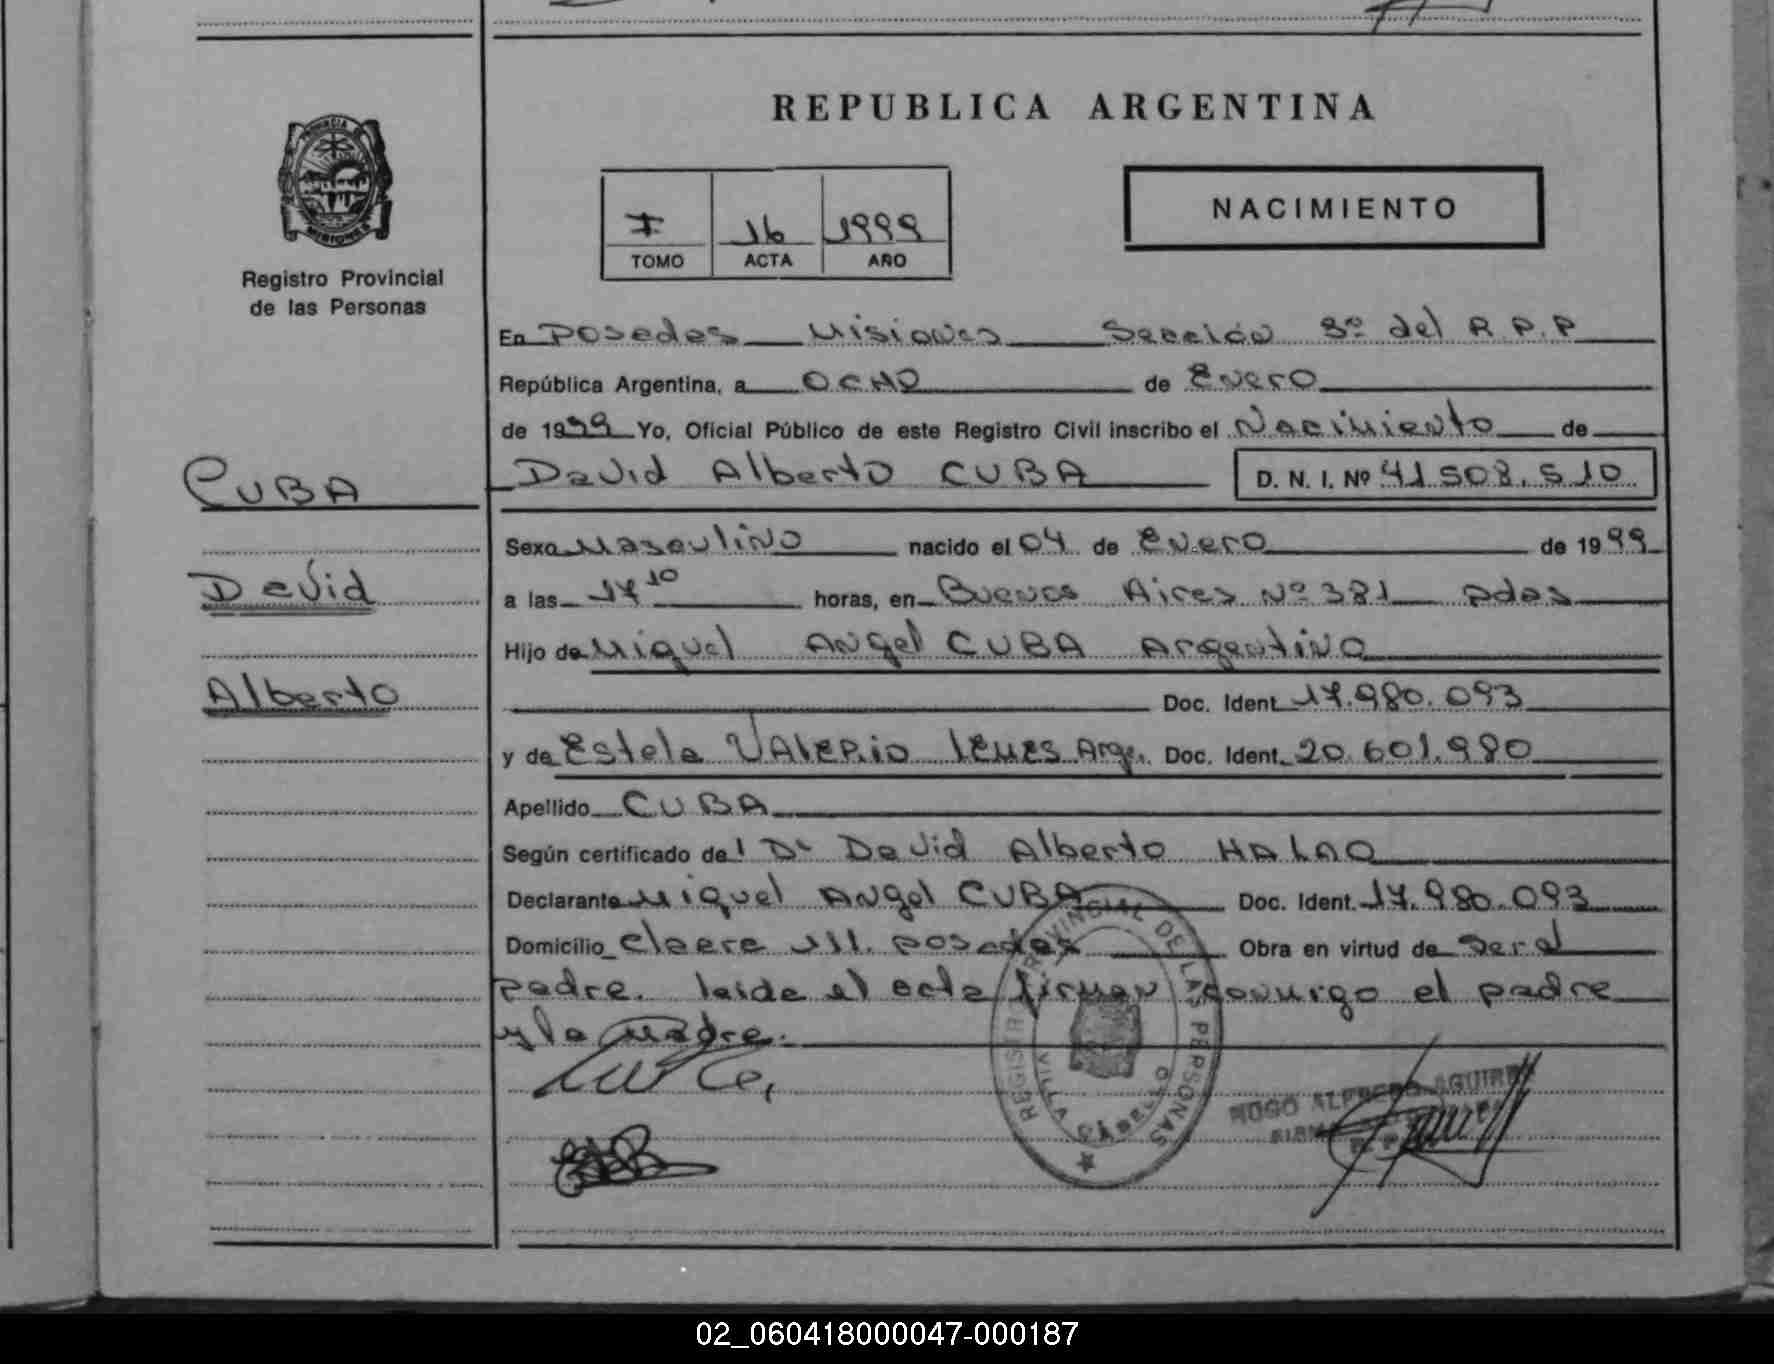 REPUBLICA ARGENTINA
PROVINCIA DE
MISIONES
Registro Provincial
de las Personas
I 16 1999
TOMO ACTA AÑO
NACIMIENTO
En Posadas Misiones Sección 3º del R.P.P
República Argentina, a OCHO de Enero
de 1999 Yo, Oficial Público de este Registro Civil inscribo el Nacimiento de
CUBA
David Alberto CUBA D. N. I. Nº 41.508.510
Sexo Masculino nacido el 04 de Enero de 1999
David
a las 17 10 horas, en Buenos Aires Nº 381 Pdas
Hijo de Miguel Angel CUBA Argentino
Alberto
Doc. Ident. 17.980.093
y de Estela VALERIO LEMES Arg. Doc. Ident. 20.601.980
Apellido CUBA
Según certificado del Dr David Alberto HALAO
Declarante Miguel Angel CUBA Doc. Ident. 17.980.093
Domicilio Posadas Obra en virtud de Ser el
padre. leida el acta firman conmigo el padre
y la madre.
REGISTRO PROVINCIAL DE LAS PERSONAS
HUGO ALFREDO AGUIRRE
02_060418000047-000187